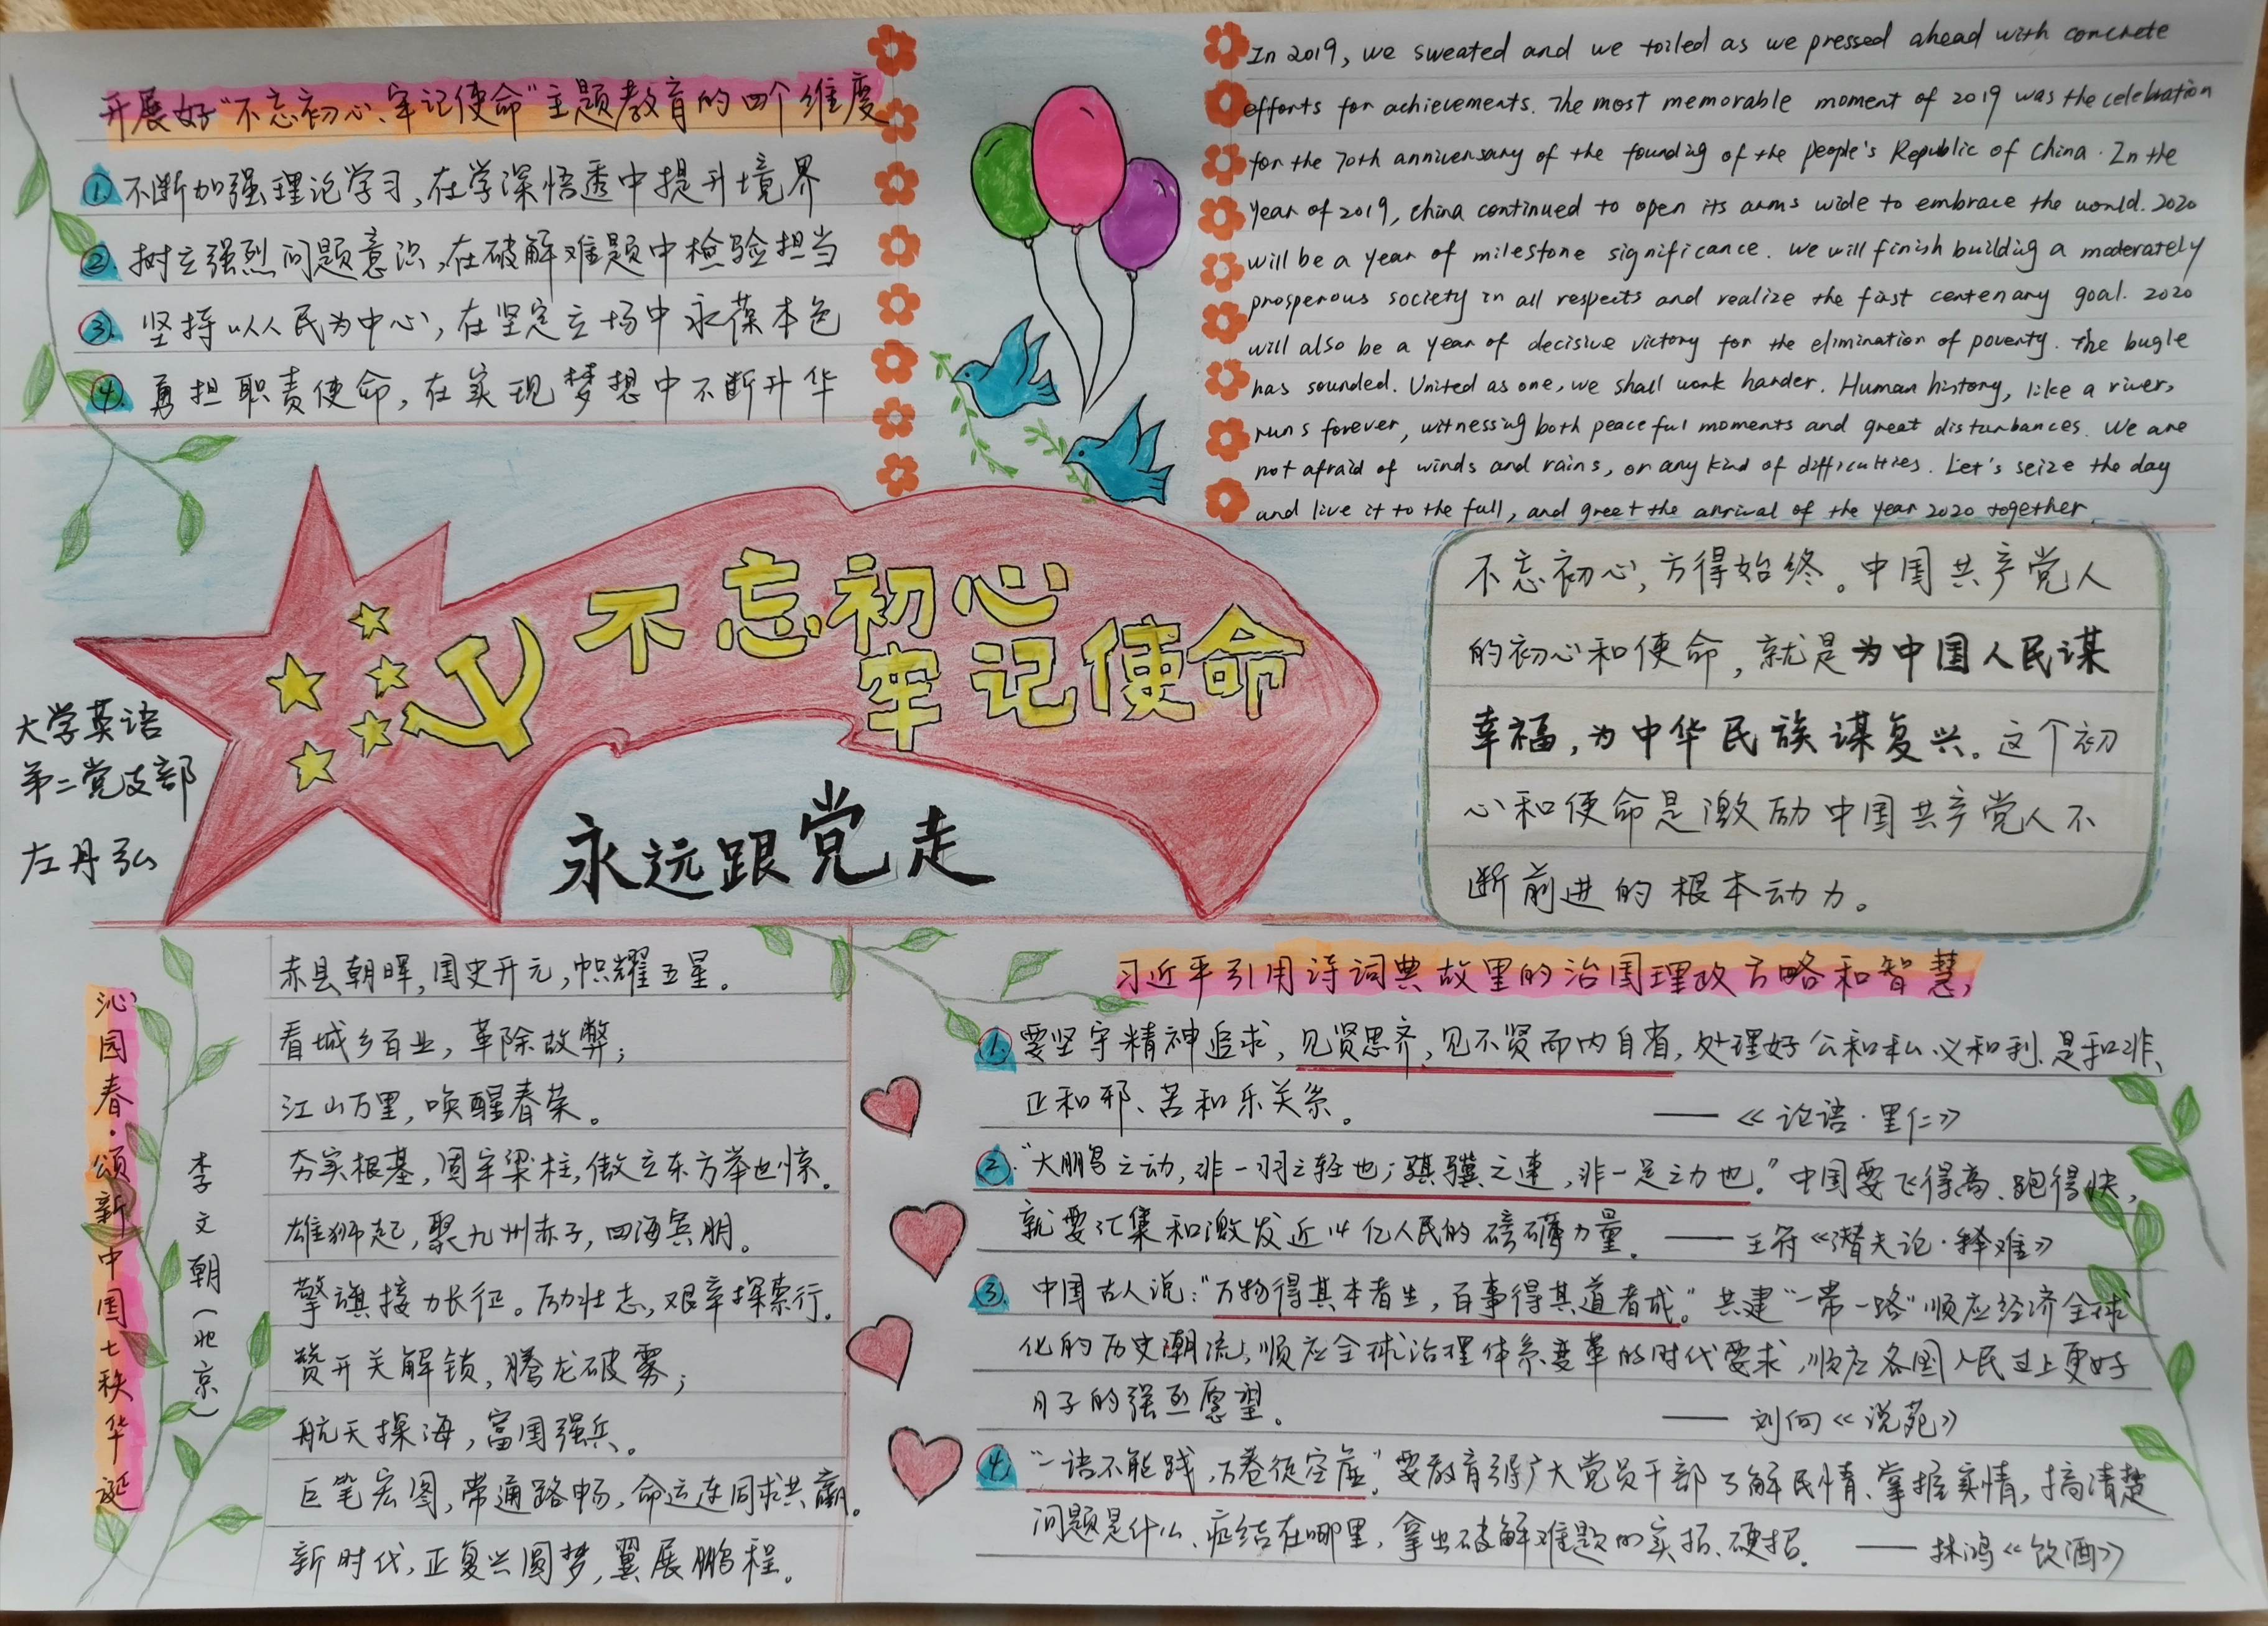 开展好"不忘初心、牢记使命"主题教育的四个维度
①不断加强理论学习,在学深悟透中提升境界
②.树立强烈问题意识,在破解难题中检验担当
③.坚持以人民为中心,在坚定立场中永葆本色
④.勇担职责使命,在实现梦想中不断升华
In 2019, we sweated and we toiled as we pressed ahead with concrete
efforts for achievements. The most memorable moment of 2019 was the celebration
for the 70th anniversary of the founding of the people's Republic of China. In the
year of 2019, China continued to open its arms wide to embrace the world. 2020
will be a year of milestone significance. We will finish building a moderately
prosperous society in all respects and realize the first centenary goal. 2020
will also be a year of decisive victory for the elimination of poverty. The bugle
has sounded. United as one, we shall work harder. Human history, like a river,
runs forever, witnessing both peaceful moments and great disturbances. We are
not afraid of winds and rains, or any kind of difficulties. Let's seize the day
and live it to the full, and greet the arrival of the year 2020 together.
不忘初心
牢记使命
永远跟党走
大学英语
第二党支部
左丹弘
不忘初心,方得始终。中国共产党人
的初心和使命,就是为中国人民谋
幸福,为中华民族谋复兴。这个初
心和使命是激励中国共产党人不
断前进的根本动力。
沁园春·颂新中国七秩华诞
李文朝(北京)
赤县朝晖,国史开元,帜耀五星。
看城乡百业,革除故弊;
江山万里,唤醒春荣。
夯实根基,固牢梁柱,傲立东方举世惊。
雄狮起,聚九州赤子,四海宾朋。
擎旗接力长征。励壮志,艰辛探索行。
赞开关解锁,腾龙破雾;
航天探海,富国强兵。
巨笔宏图,带通路畅,命运连同求共赢。
新时代,正复兴圆梦,翼展鹏程。
习近平引用诗词典故里的治国理政方略和智慧,
①.要坚守精神追求,见贤思齐,见不贤而内自省,处理好公和私、义和利、是和非、
正和邪、苦和乐关系。 ——《论语·里仁》
②."大鹏之动,非一羽之轻也;骐骥之速,非一足之力也。"中国要飞得高、跑得快,
就要汇集和激发近14亿人民的磅礴力量。 ——王符《潜夫论·释难》
③. 中国古人说:"万物得其本者生,百事得其道者成。"共建"一带一路"顺应经济全球
化的历史潮流,顺应全球治理体系变革的时代要求,顺应各国人民过上更好
日子的强烈愿望。 ——刘向《说苑》
④."一语不能践,万卷徒空虚。"要教育引导广大党员干部了解民情、掌握实情,搞清楚
问题是什么、症结在哪里,拿出破解难题的实招、硬招。 ——林鸿《饮酒》